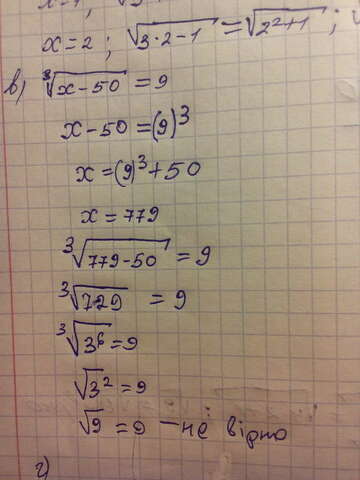 x=2; √3·2-1 = √2²+1;
в) ³√x-50 = 9
x-50=(9)³
x=(9)³+50
x=779
³√779-50 = 9
³√729 = 9
³√3⁶=9
√3²=9
√9=9 - не вірно
г)